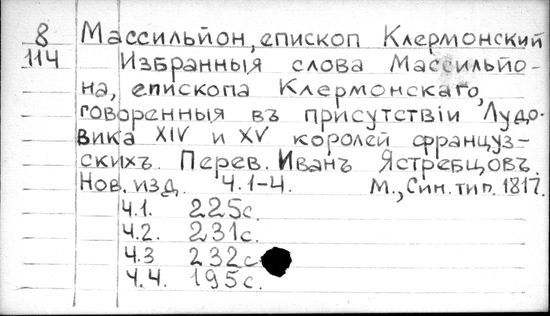 8 Массильон, епископ Клермонский
114 Избранныя слова Массильо-
на, епископа Клермонскаго,
говоренныя въ присутствіи Лудо-
вика XIV и XV королей француз-
скихъ. Перев. Иванъ Ястребцовъ.
Нов. изд. Ч.1-4. М., Син. тип. 1817.
Ч.1. 225с.
Ч.2. 231с.
Ч.3 232с
Ч.4. 195с.